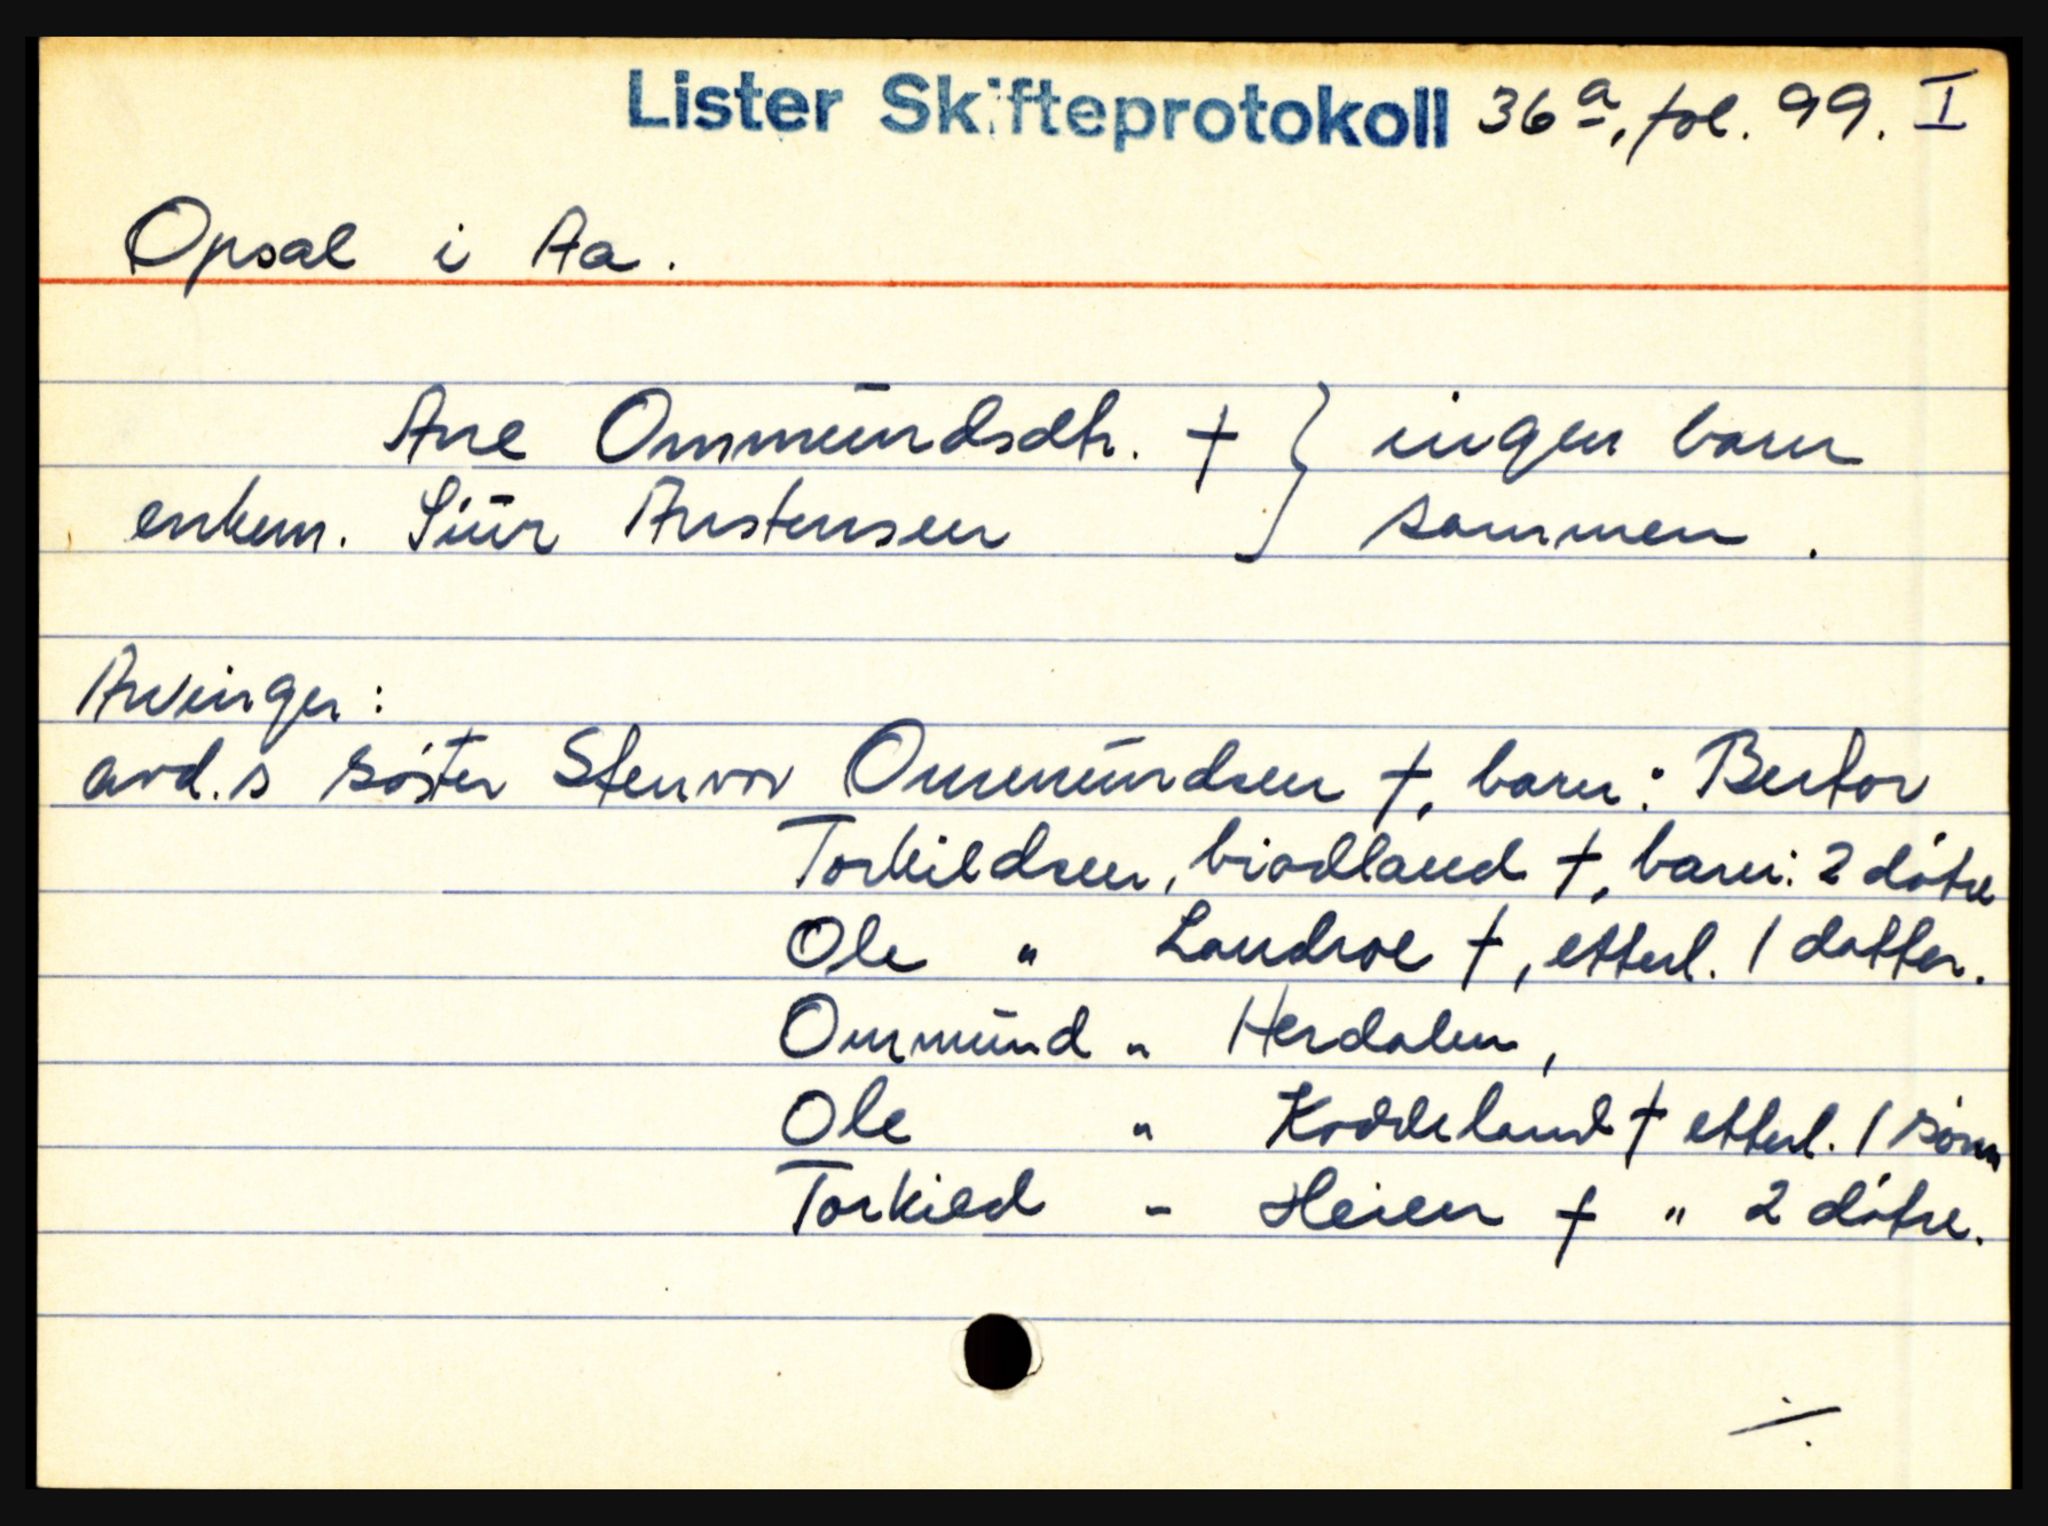 Lister Skifteprotokoll 36a, fol. 99. I
Opsal i Aa.
Ane Ommundsdtr. † } ingen barn
enkem. Siur Anstensen } sammen.
Arvinger:
avd.s söster Stenvor Ommundsen †, barn: Bertor
Torkildsen, birdland †, barn: 2 dötre
Ole " Landroe †, etterl. 1 datter.
Ommund " Herdalen,
Ole " Koddeland † etterl. 1 sönn
Torkild - Heien † " 2 dötre.
./.